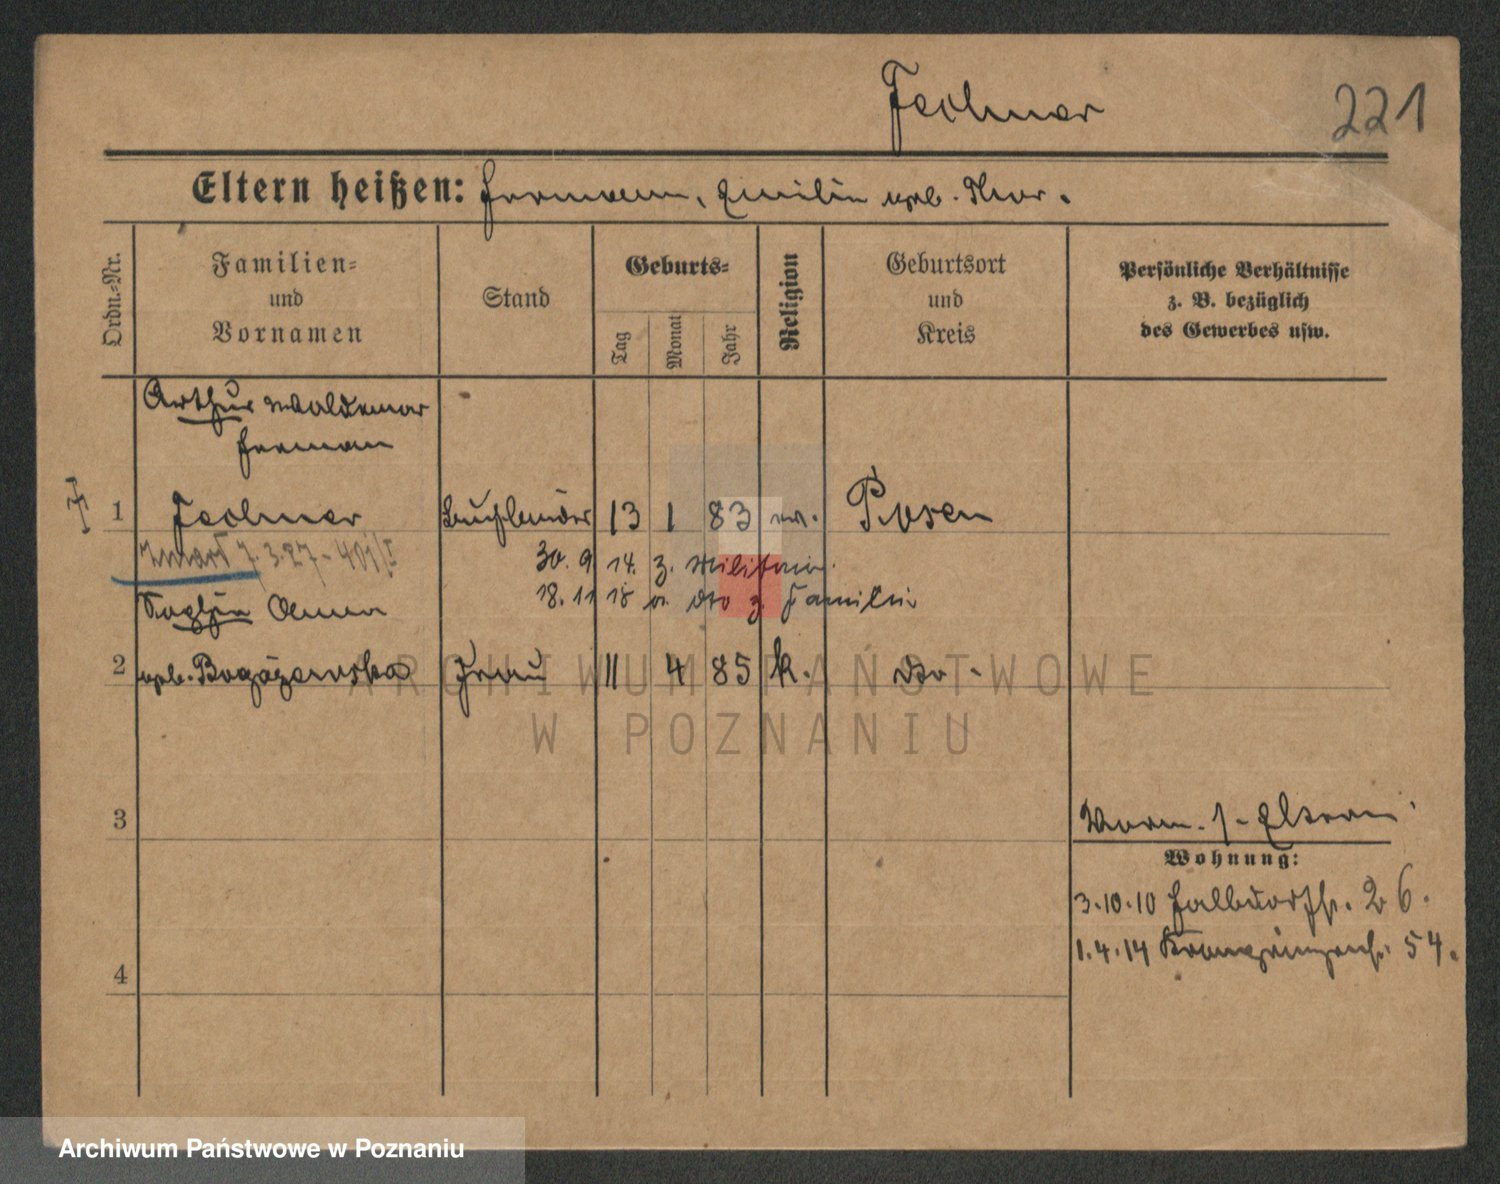 Fechner
221
Eltern heißen: Hermann, Emilie geb. Thor.
Ordn.=Nr.
Familien=
und
Vornamen
Stand
Geburts=
Tag
Monat
Jahr
Religion
Geburtsort
und
Kreis
Persönliche Verhältnisse
z. B. bezüglich
des Gewerbes usw.
Arthur Waldemar
Herman
1 Fechner 13 1 83 Posen
Zmarł 7.3.27
30.9.14. z. Militair.
18.11.18 v. dto z. Familie
Anna
2 geb. Frau 11 4 85 k. dto.
3
Vorm. s. Eltern
Wohnung:
3.10.10 26.
4
1.4.14 Kronprinzenstr. 54.
ARCHIWUM PAŃSTWOWE
W POZNANIU
Archiwum Państwowe w Poznaniu